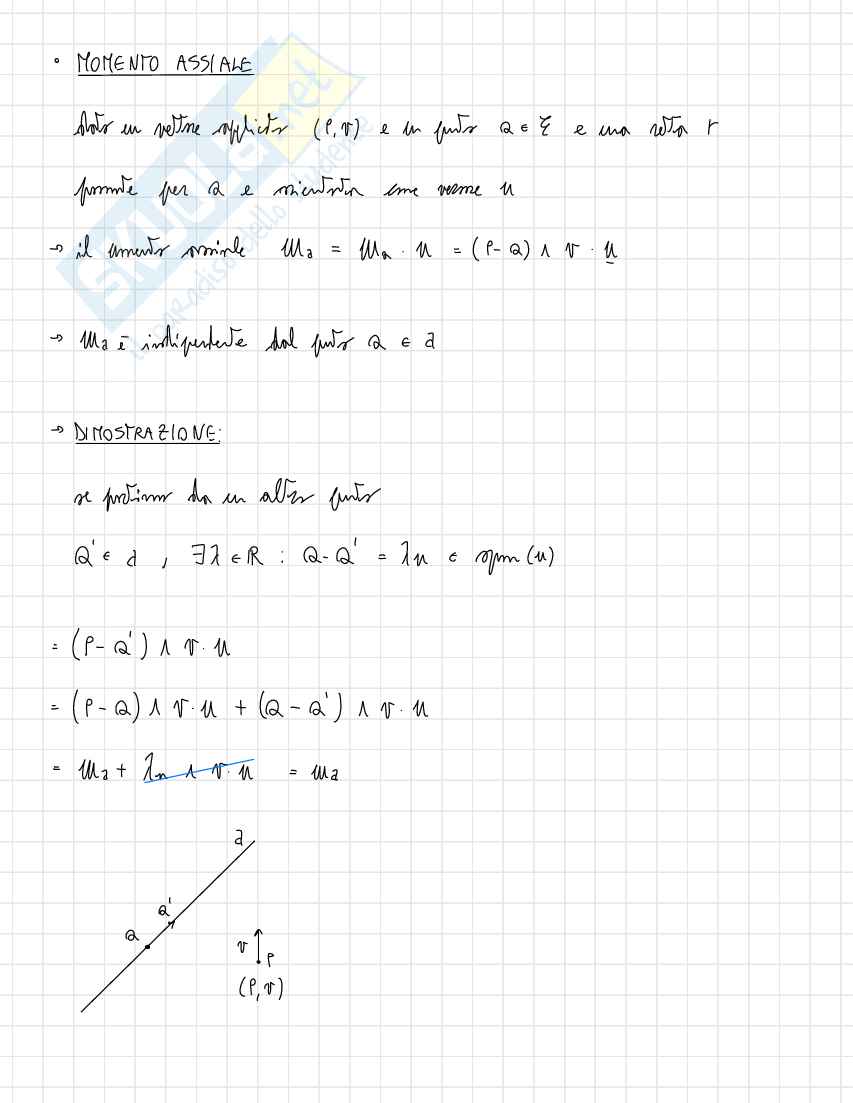 • MOMENTO ASSIALE
dato un vettore applicato (P, v) e un punto Q ∈ ℰ e una retta r
passante per Q e orientata come versore u
→ il momento assiale ma = mQ · u = (P - Q) ∧ v · u
→ ma è indipendente dal punto Q ∈ a
→ DIMOSTRAZIONE:
se partiamo da un altro punto
Q' ∈ a , ∃ λ ∈ R : Q - Q' = λu ∈ span (u)
= (P - Q') ∧ v · u
= (P - Q) ∧ v · u + (Q - Q') ∧ v · u
= ma + λu ∧ v · u = ma
a
Q'
Q
v
P
(P, v)
SKUOLA.net
il paradiso dello studente